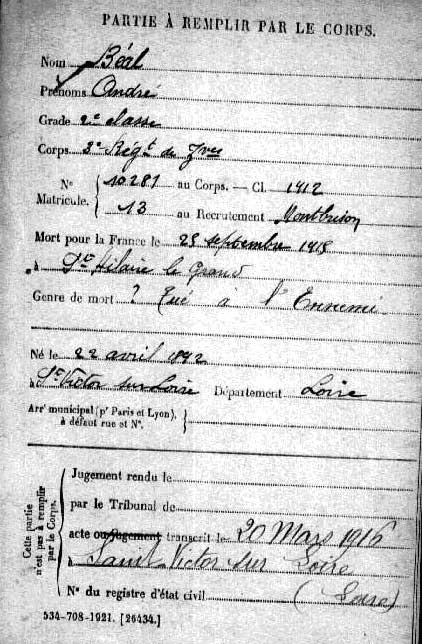 PARTIE À REMPLIR PAR LE CORPS.
Nom Béal
Prénoms André
Grade 2e classe
Corps 3e Régt de Zves
No Matricule. 10281 au Corps. — Cl. 1912
13 au Recrutement Montbrison
Mort pour la France le 25 septembre 1915
à St Hilaire le Grand
Genre de mort ? Tué à l'Ennemi
Né le 22 avril 1892
à St Victor sur Loire Département Loire
Arrt municipal (pr Paris et Lyon), à défaut rue et No.
Cette partie n'est pas à remplir par le Corps.
Jugement rendu le
par le Tribunal de
acte ou jugement transcrit le 20 Mars 1916
à Saint Victor sur Loire
(Loire)
No du registre d'état civil
534-708-1921. [26434.]